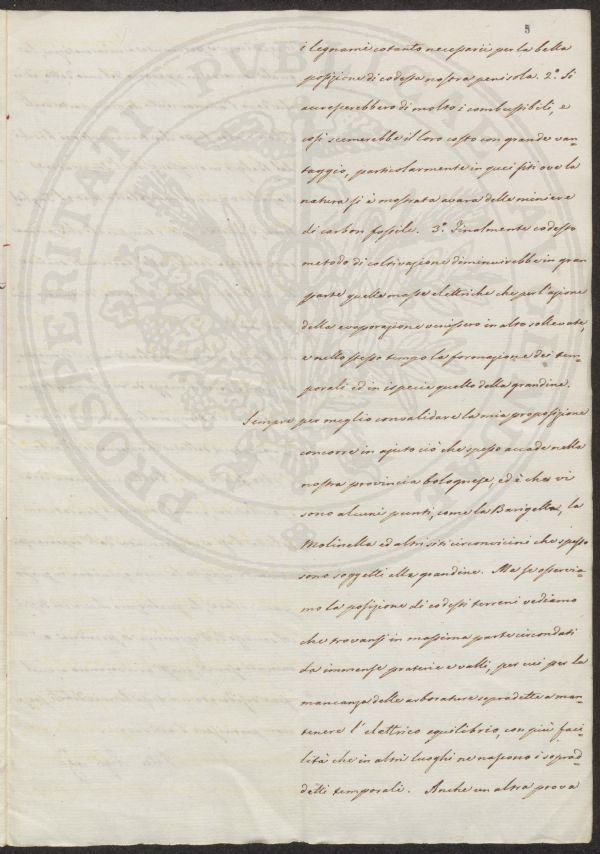 5
i legnami cotanto necessarii per la bella
posizione di codesta nostra penisola. 2.° Si
accrescerebbero di molto i combustibili, e
così scemerebbe il loro costo con grande van=
taggio, particolarmente in quei siti ove la
natura si è mostrata avara delle miniere
di carbon fossile. 3.° Finalmente codesto
metodo di coltivazione diminuirebbe in gran
parte quelle masse elettriche che per l'azione
della evaporazione venissero in alto sollevate,
e nello stesso tempo la formazione dei tem=
porali ed in ispecie quello della grandine.
Sempre per meglio convalidare la mia proposizione
concorre in ajuto ciò che spesso accade nella
nostra provincia bolognese, ed è che vi
sono alcuni punti, come la Barigella, la
Molinella ed altri siti circonvicini che spesso
sono soggetti alla grandine. Ma se osservia=
mo la posizione di codesti terreni vediamo
che trovansi in massima parte circondati
da immense praterie e valli, per cui per la
mancanza delle arborature sopradette a man=
tenere l'elettrico equilibrio, con più faci=
lità che in altri luoghi ne nascono i soprad=
detti temporali. Anche un'altra prova
PROSPERITATI PUBLICAE